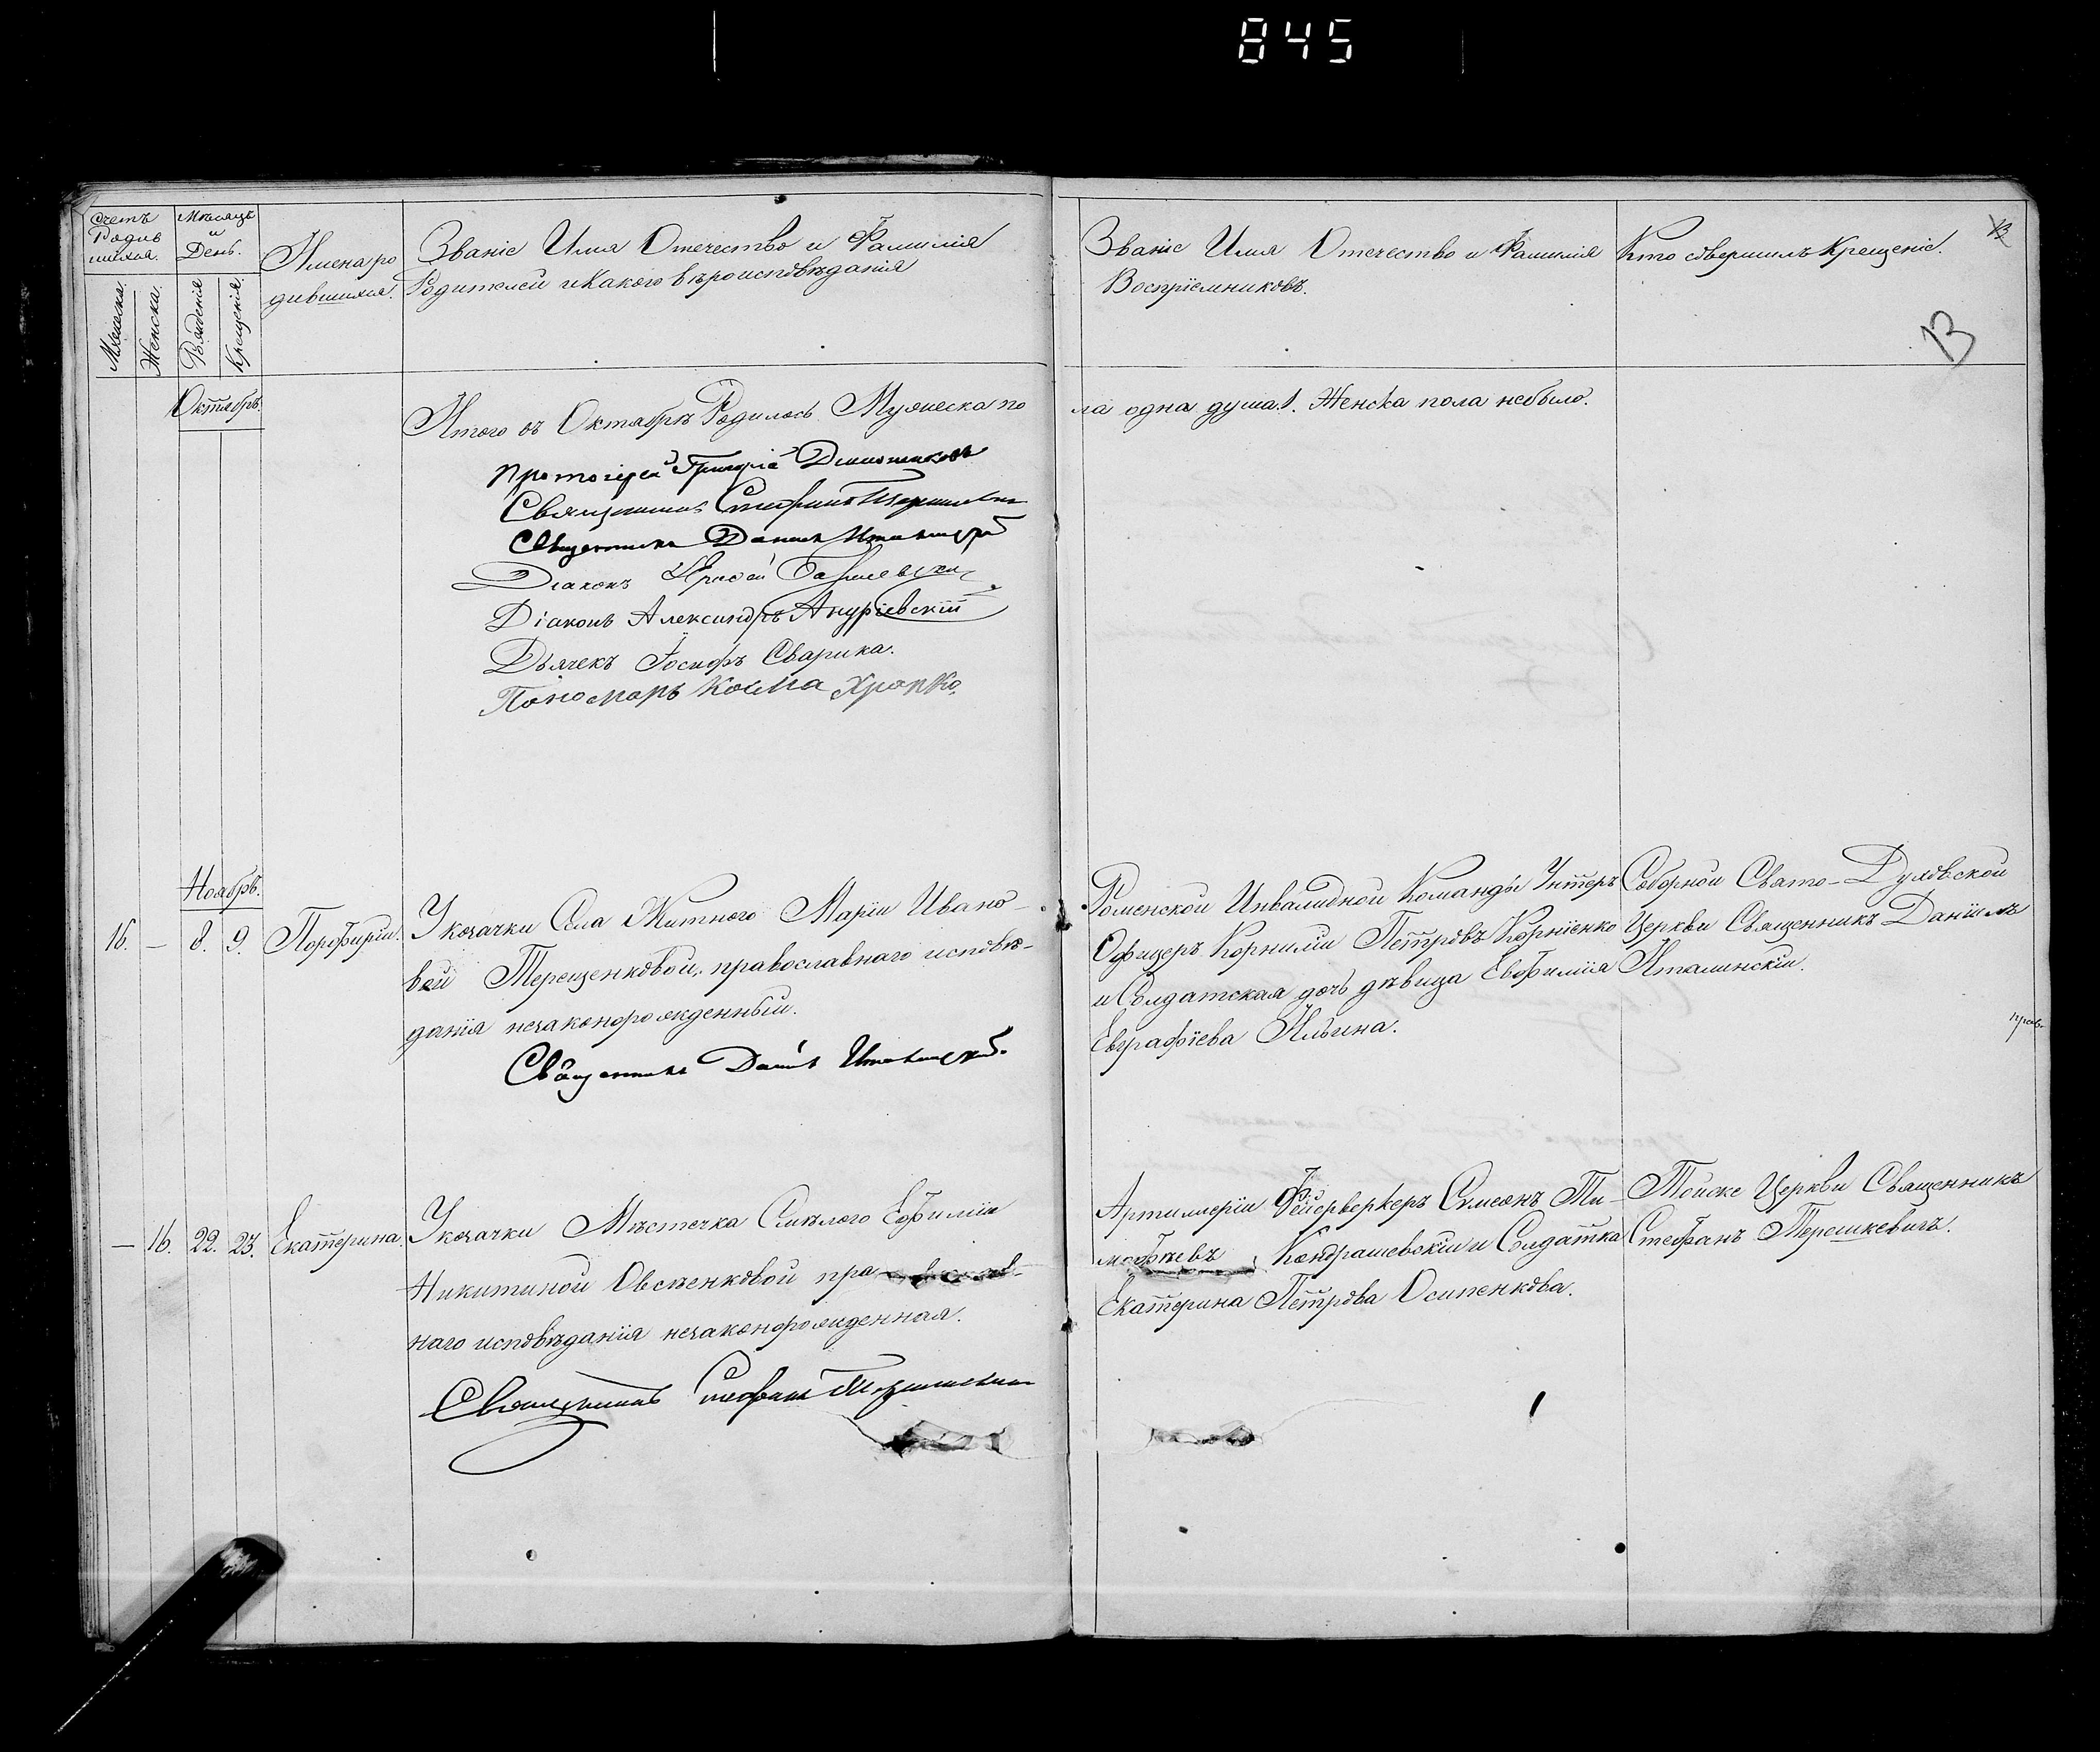 845
Счетъ Родив шихся.
Мѣсяцъ и День.
Имена ро дившихся.
Званіе Имя Отечество и Фамилія
Родителей и Какого вѣроисповѣданія
Званіе Имя Отечество и Фамилія
Воспріемниковъ.
Кто совершилъ Крещеніе.
13
13
Мужеска.
Женска.
Рожденія
Крещенія
Октябрь.
Итого въ Октябрѣ Родилось Мужеска по
ла одна душа. 1. Женска пола небыло.
Протоіерей Григорій
Священникъ Стефанъ Терешкевичъ
Священникъ Даніилъ
Діаконъ
Діаконъ Александръ
Дьячекъ Іосифъ Сварика.
Пономарь Косма Храпко.
Ноябрь.
16. — 8. 9. Порфирій.
У козачки Села Житного Маріи Ивано-
вой Терещенковой, православнаго исповѣ-
данія незаконорожденный.
Священникъ Даніилъ
Роменской Инвалидной Команды Унтеръ
Офицеръ Корнилій Петровъ Корніенко
и Солдатская дочь дѣвица Евфимія
Евграфіева Ильина.
Соборной Свято-Духовской
Церкви Священникъ Даніилъ
Италинскій.
— 16. 22. 23. Екатерина.
У козачки Мѣстечка Смѣлого Ефиміи
Никитиной Овсѣенковой православ-
наго исповѣданія незаконорожденная.
Священникъ Стефанъ Терешкевичъ
Артиллеріи Фейерверкеръ Симеонъ Ти-
мофѣевъ Кондрашевскій и Солдатка
Екатерина Петрова Осипенкова.
Тойже Церкви Священникъ
Стефанъ Терешкевичъ.